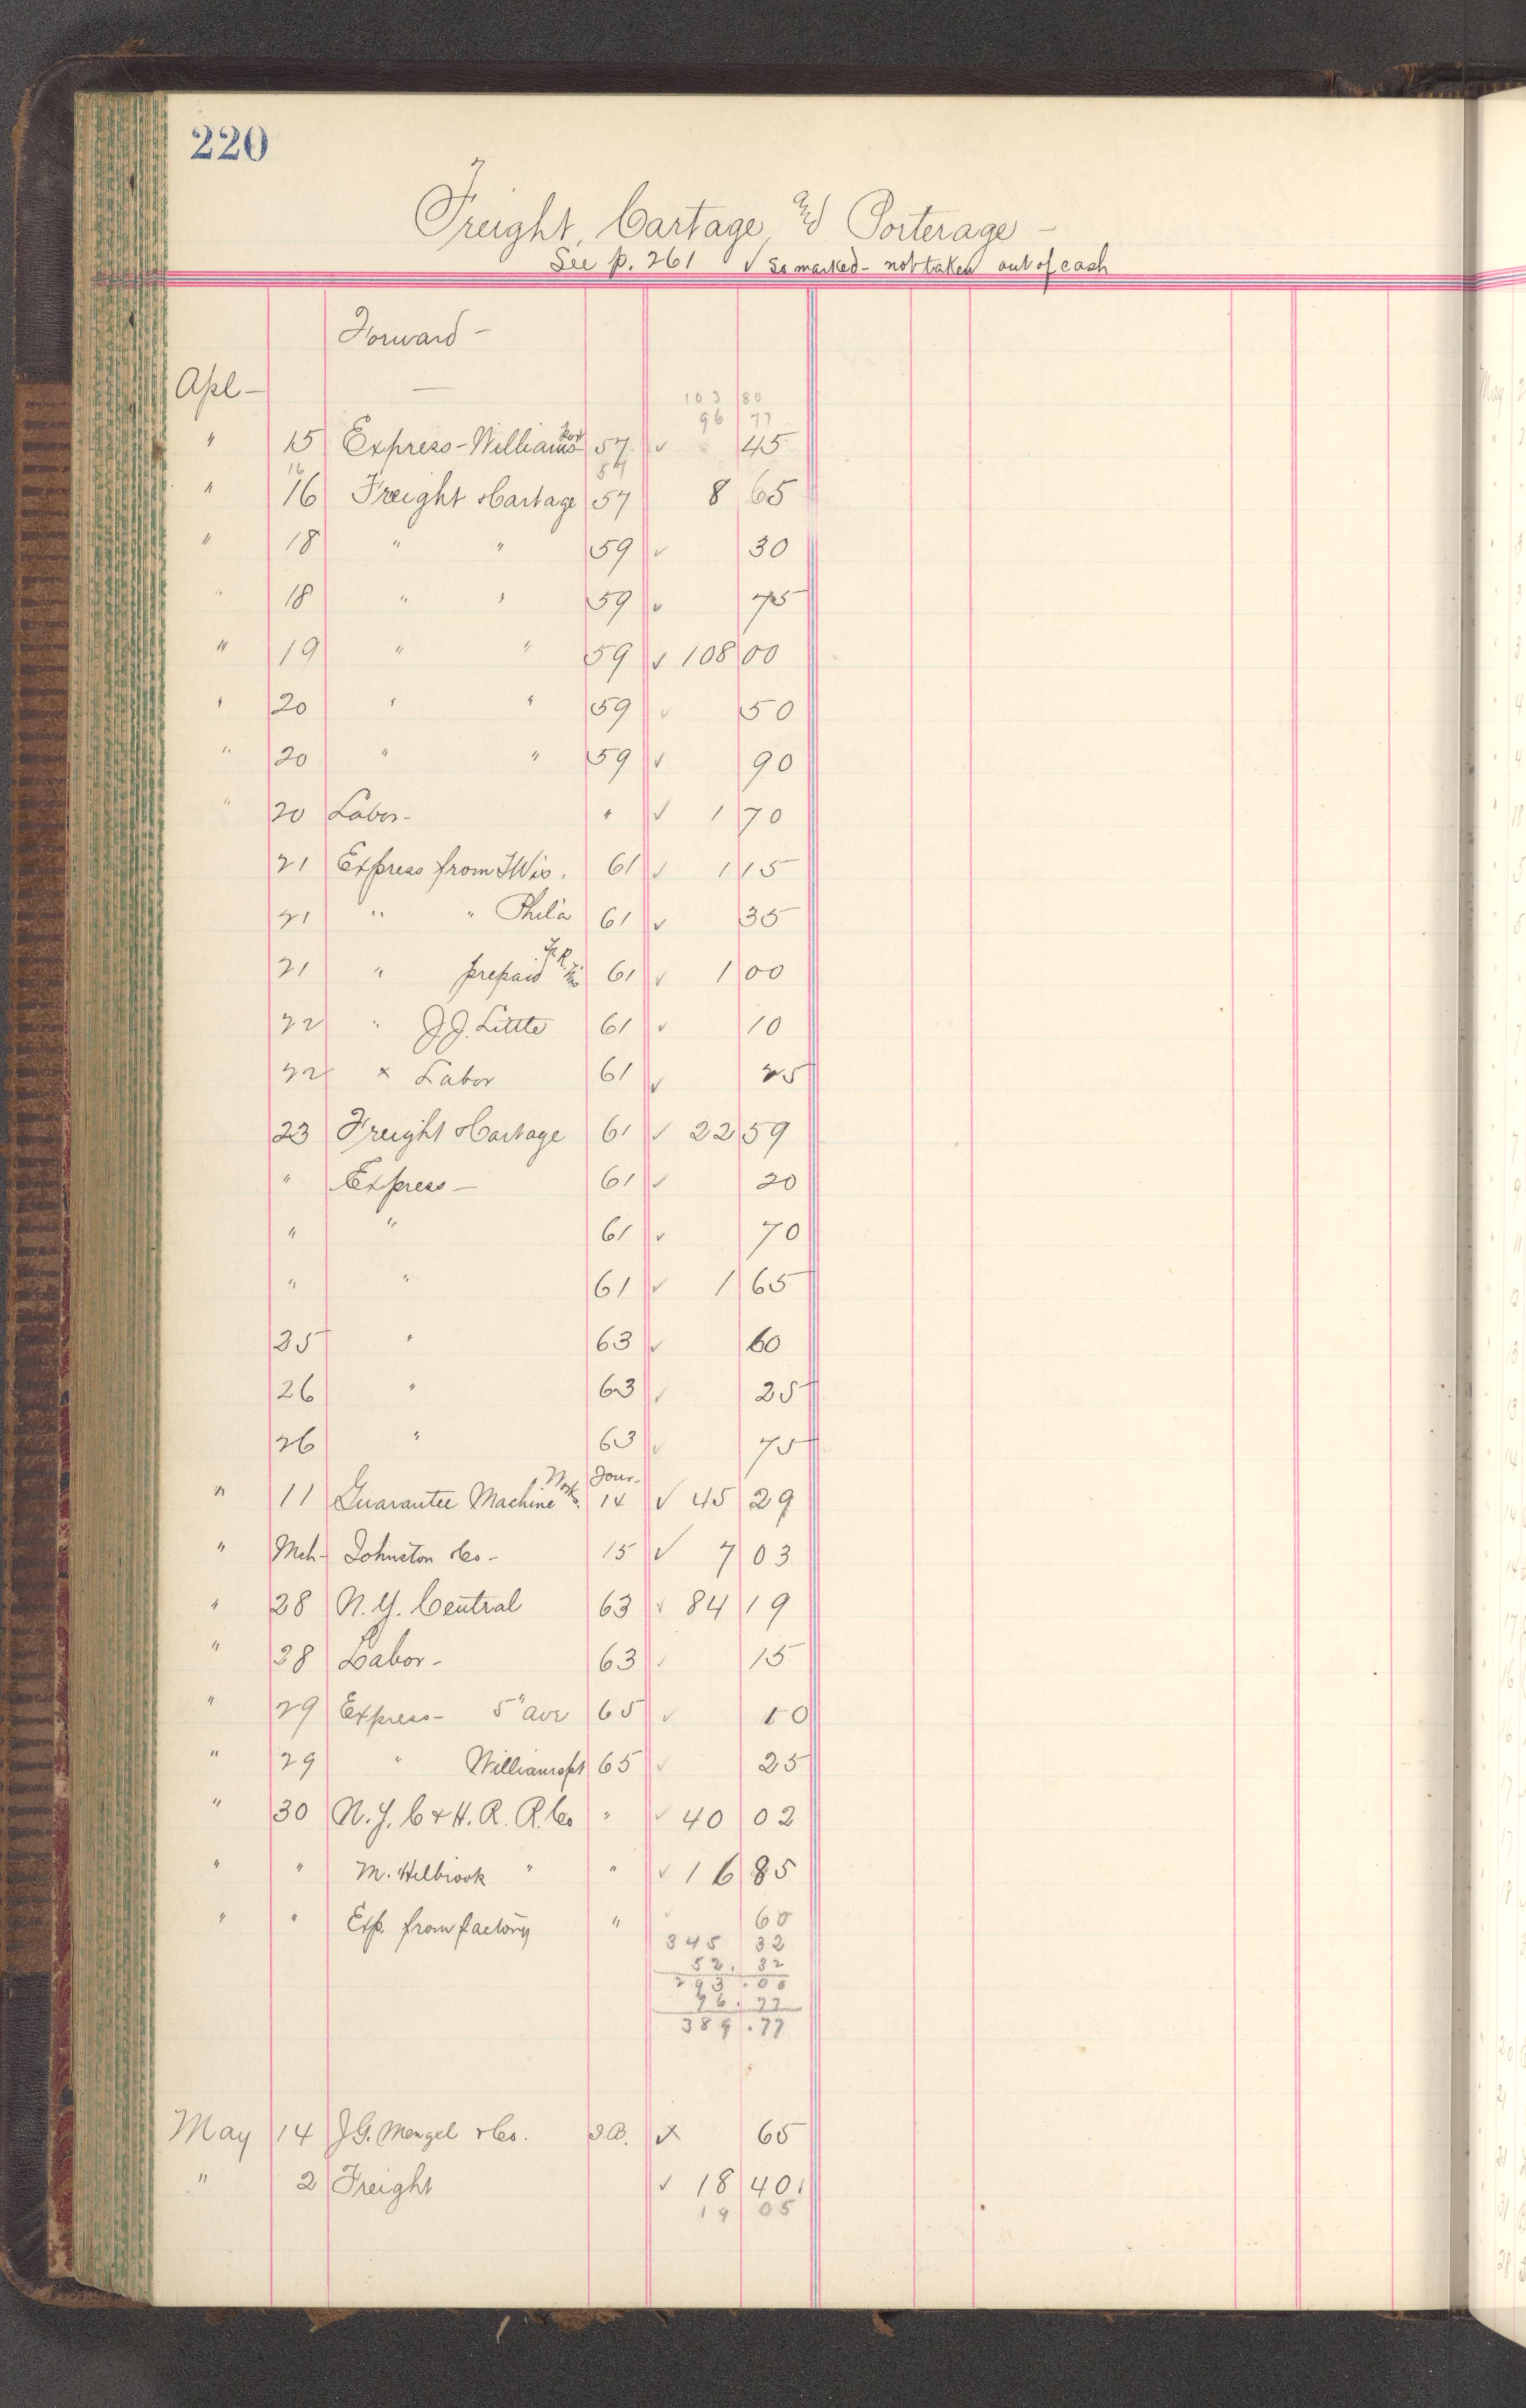 220
Freight, Cartage, and Porterage -
See p. 261 ✓ So marked - not taken out of cash
Forward -
Apl -
103 80
96 77
" 15 Express - Williamsport 57 ✓ 45
16 57
" 16 Freight & Cartage 57 8 65
" 18 " " 59 ✓ 30
" 18 " " 59 ✓ 75
" 19 " " 59 ✓ 108 00
" 20 " " 59 ✓ 50
" 20 " " 59 ✓ 90
" 20 Labor - " ✓ 1 70
21 Express from 61 ✓ 1 15
21 " " Phil'a 61 ✓ 35
21 " prepaid 61 ✓ 1 00
22 " J.J. Little 61 ✓ 10
22 x Labor 61 ✓ 25
23 Freight & Cartage 61 ✓ 22 59
" Express - 61 ✓ 20
" " 61 ✓ 70
" " 61 ✓ 1 65
25 " 63 ✓ 60
26 " 63 ✓ 25
26 " 63 ✓ 75
" 11 Guarantee Machine Works. Jour. 14 ✓ 45 29
" Mch - Johnston & Co - 15 ✓ 7 03
" 28 N.Y. Central 63 ✓ 84 19
" 28 Labor - 63 ✓ 15
" 29 Express - 5" Ave 65 ✓ 10
" 29 " Williamspt 65 ✓ 25
" 30 N.Y. C & H. R. R. Co " ✓ 40 02
" " M. Helbrook " " ✓ 16 85
" " Exp. from factory " ✓ 60
345 32
52. 32
293.00
96.77
389.77
May 14 J.G. Mengel & Co. I.B. x 65
" 2 Freight ✓ 18 40
19 05